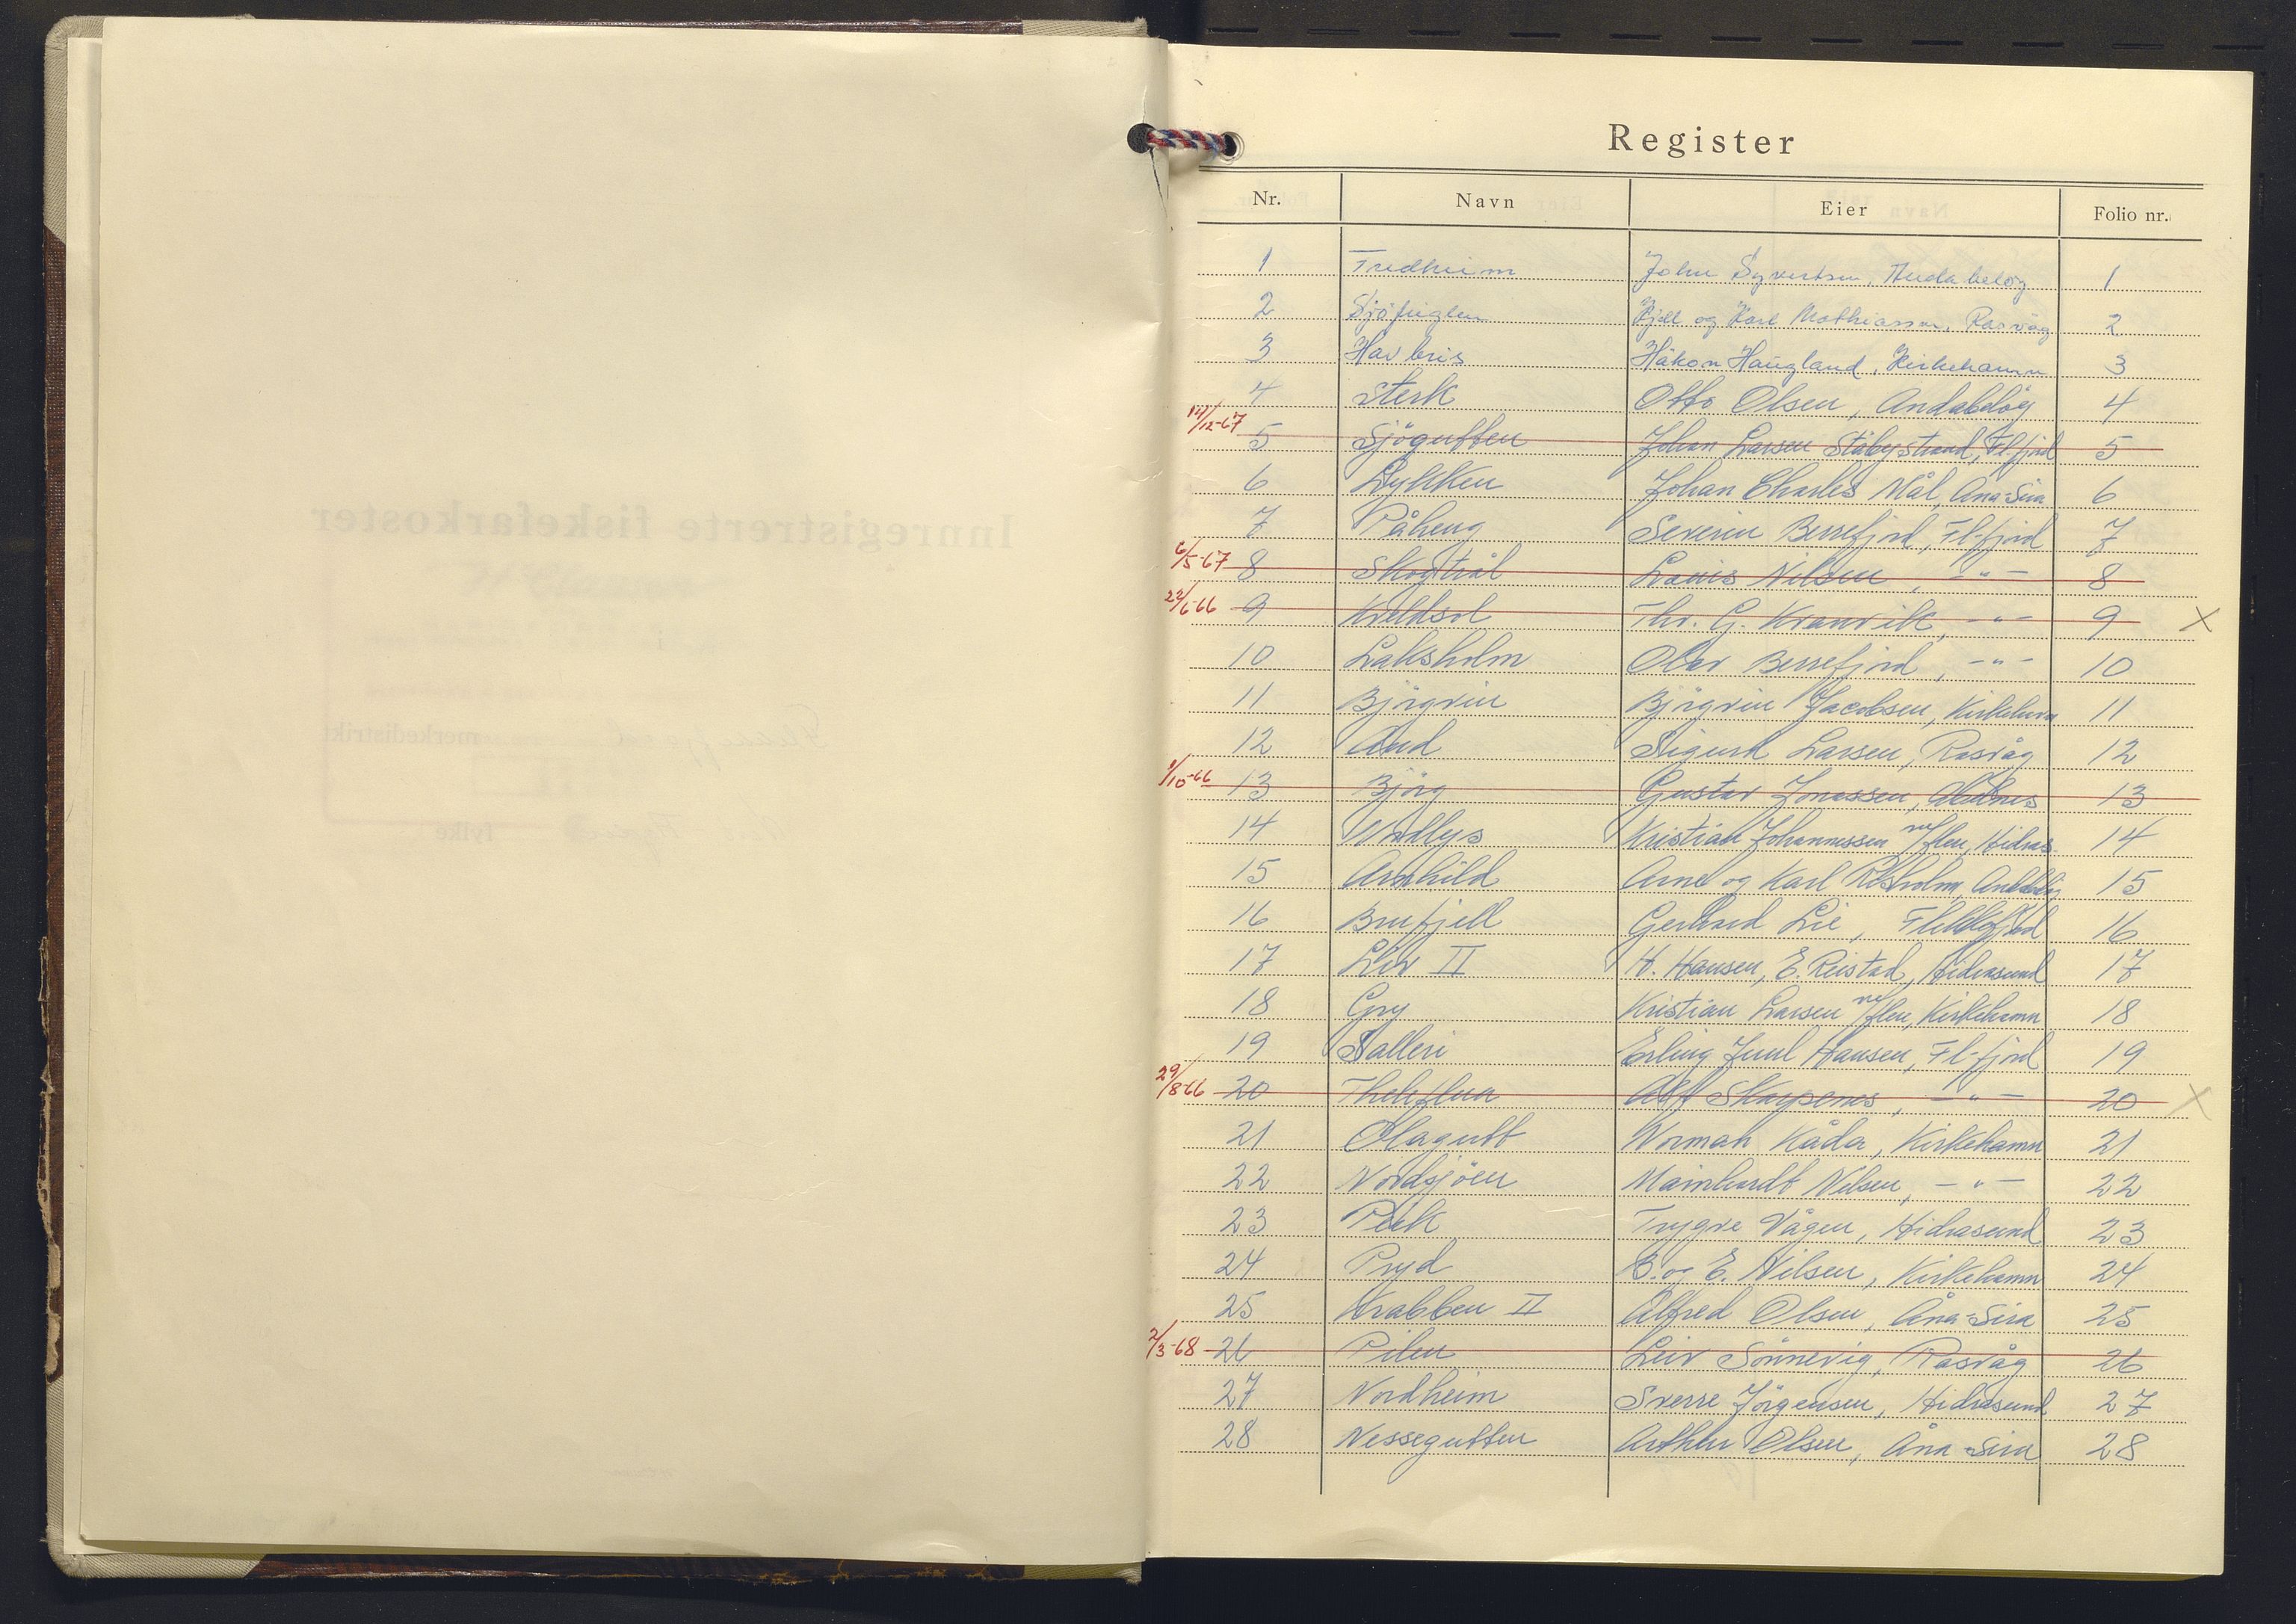 Register
Nr. Navn Eier Folio nr.
1 Fredheim John Syvertsen, Andabeløy 1
2 Sjøfuglen Kjell og Karl Mathiassen, Rasvåg 2
3 Havbris Håkon Haugland, Kirkehamn 3
4 Sterk Otto Olsen, Andabeløy 4
14/12-67 5 Sjøgutten Johan Larsen Stålegstrand, Fl.fjord 5
6 Lykken Johan Charles Mål, Ana-Sira 6
7 Påheng Severin Berrefjord, Fl-fjord 7
6/5-67 8 Skogtrål Lauis Nilsen, -"- 8
22/6-66 9 Kveldsol Thv. G. Kvanvik, -"- 9 X
10 Laksholm Olav Berrefjord, -"- 10
11 Bjørgvin Bjørgvin Jacobsen, Kirkehavn 11
12 Aud Sigurd Larsen, Rasvåg 12
1/10-66 13 Bjørg Gustav Jonassen, Abelnes 13
14 Nordlys Kristian Johannessen m/flere, Hidras. 14
15 Arnhild Arne og Karl Risholm, Andabeløy 15
16 Brufjell Gerhard Lie, Flekkefjord 16
17 Liv II H. Hansen, E. Reistad, Hidrasund 17
18 Gry Kristian Larsen m/flere, Kirkehamn 18
19 Salleri Erling Juul Hansen, Fl-fjord 19
29/8-66 20 Alf Skarpenes, -"- 20 X
21 Olagutt Normah Kåda, Kirkehamn 21
22 Nordsjøen Mainhardt Nilsen, -"- 22
23 Perk Trygve Vågen, Hidrasund 23
24 Pryd B. og E. Nilsen, Kirkehamn 24
25 Krabben II Alfred Olsen, Åna-Sira 25
2/3-68 26 Pilen Leiv Sønnevig, Rasvåg 26
27 Nordheim Sverre Jörgensen, Hidrasund 27
28 Nessegutten Arthur Olsen, Åna-Sira 28